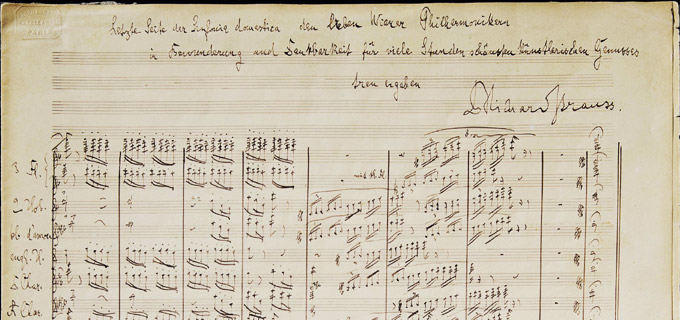 Letzte Seite der Sinfonia domestica den lieben Wiener Philharmonikern
in Bewunderung und Dankbarkeit für viele Stunden schönsten künstlerischen Genusses
treu ergeben
DRichard Strauss.
8va
3 Fl.
2 Hob.
ob. d'amore
engl. H.
D Clar.
A Clar.